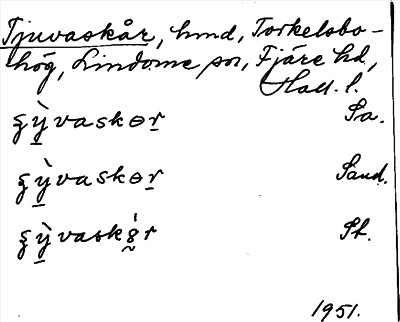 Tjuvaskår, hmd, Torkelsbo-
hög, Lindome sn, Fjäre hd,
Hall. l.
ʂỳ̱vaskɵṟ Sa.
ʂỳ̱vaskɵṟ Sand.
ʂỳ̱vask r St.
1951.